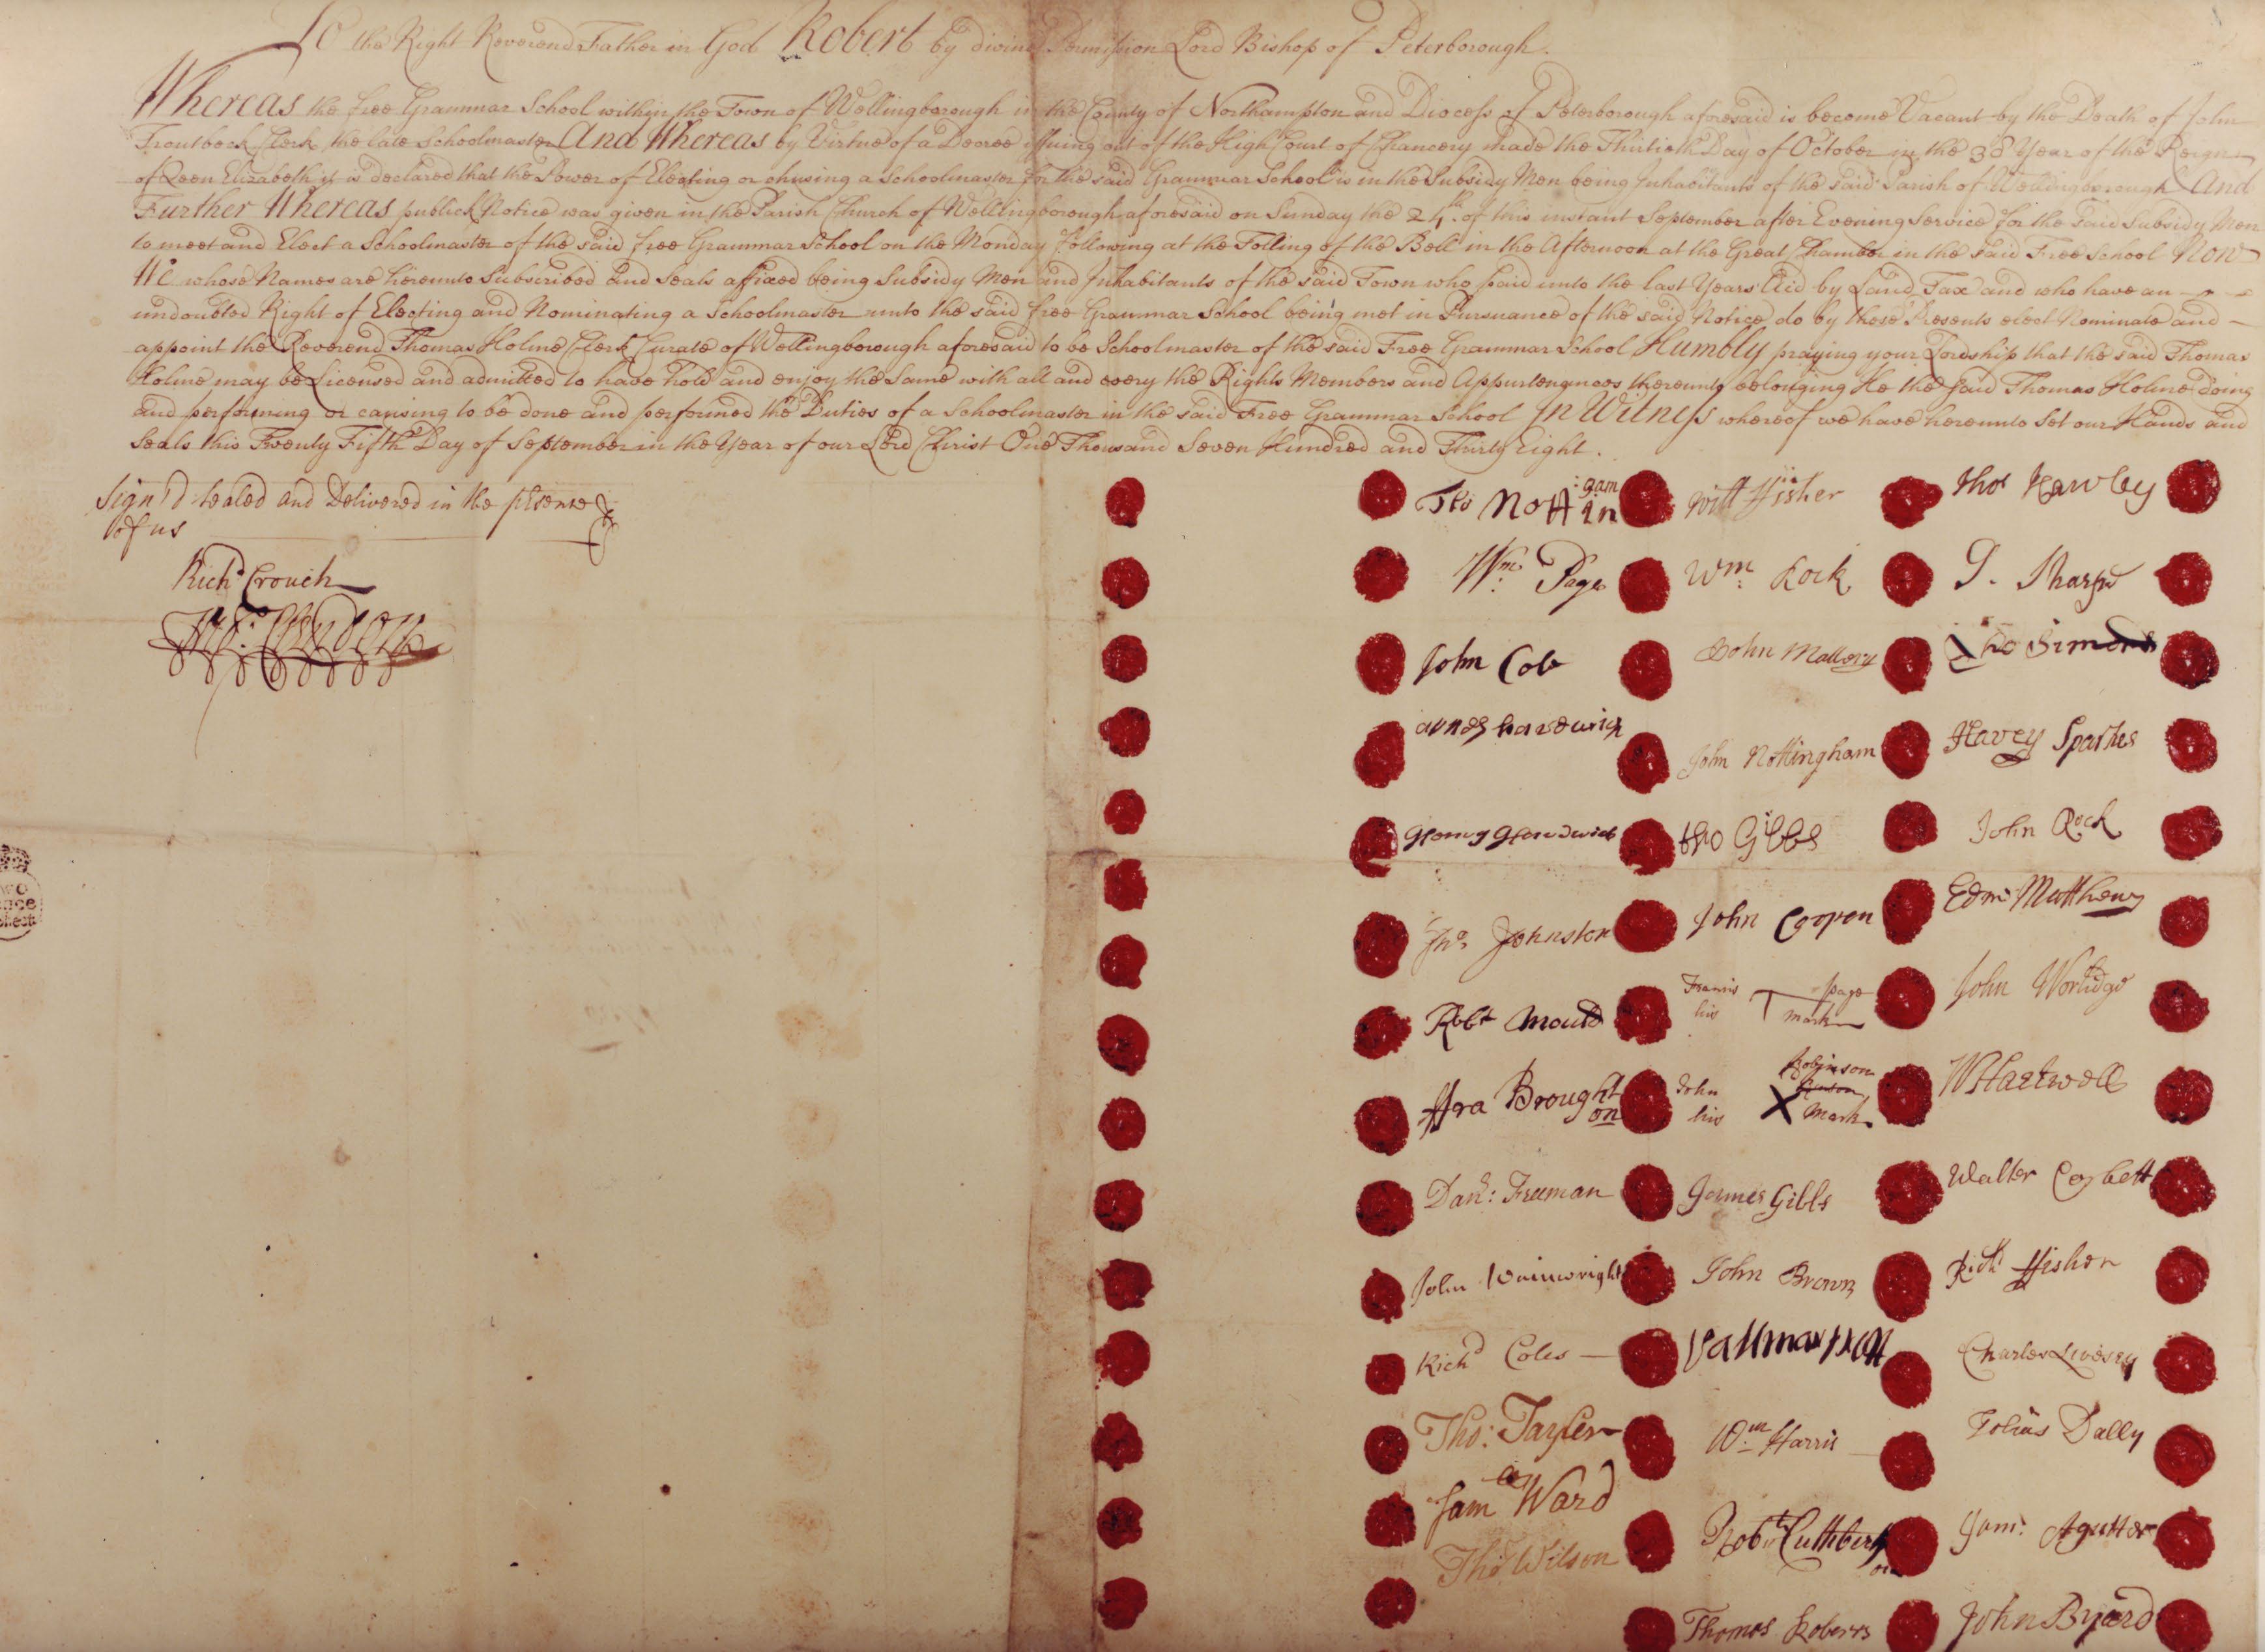 To the Right Reverend Father in God Robert by divine Permission Lord Bishop of Peterborough.
Whereas the free Grammar School within the Town of Wellingborough in the County of Northampton and Diocess of Peterborough aforesaid is become Vacant by the Death of John
Troutbeck Clerk the late Schoolmaster And Whereas by Virtue of a Decree issuing out of the High Court of Chancery made the Thirtieth Day of October in the 3d Year of the Reign
of Queen Elizabeth it is declared that the Power of Electing or chusing a Schoolmaster for the said Grammar School is in the Subsidy Men being Inhabitants of the said Parish of Wellingborough And
Further Whereas publick Notice was given in the Parish Church of Wellingborough aforesaid on Sunday the 24th of this instant September after Evening Service for the said Subsidy Men
to meet and Elect a Schoolmaster of the said free Grammar School on the Monday following at the Tolling of the Bell in the Afternoon at the Great Chamber in the said Free School Now
We whose Names are hereunto Subscribed and Seals affixed being Subsidy Men and Inhabitants of the said Town who paid unto the last Years Aid by Land Tax and who have an
undoubted Right of Electing and Nominating a Schoolmaster unto the said free Grammar School being met in Pursuance of the said Notice do by these Presents elect Nominate and
appoint the Reverend Thomas Holme Clerk Curate of Wellingborough aforesaid to be Schoolmaster of the said Free Grammar School Humbly praying your Lordship that the said Thomas
Holme may be Licensed and admitted to have hold and enjoy the Same with all and every the Rights Members and Appurtenances thereunto belonging He the said Thomas Holme doing
and performing or causing to be done and performed the Duties of a Schoolmaster in the said Free Grammar School In Witness whereof we have hereunto Set our Hands and
Seals this Twenty Fifth Day of September in the Year of our Lord Christ One Thousand Seven Hundred and Thirty Eight.
Sign'd Sealed and Delivered in the presence
of us
Richd Crouch
Tho Nottin:gam
Wm Page
John Cob
Jno Johnston
Robt Mould
Fra Broughton
Danl: Freeman
John Wainwright
Richd Coles
Tho: Tayler
Saml Ward
Tho Wilson
Will Fisher
Wm Rock
John Mallery
John Nottingham
tho Gibbs
John Cooper
Francis page
his T mark
John Robinson
his X mark
James Gibbs
John Brown
Wm Harris
Robt Cuthbert
Thomas Roberts
Thos Hawley
Tho Simons
Havey Sparkes
John Rock
Edm: Matthews
John Worlidge
W Hartwell
Walter Corbett
Richd Fisher
Charles Livesey
Tobias Dally
Jam: Agutter
John Byard